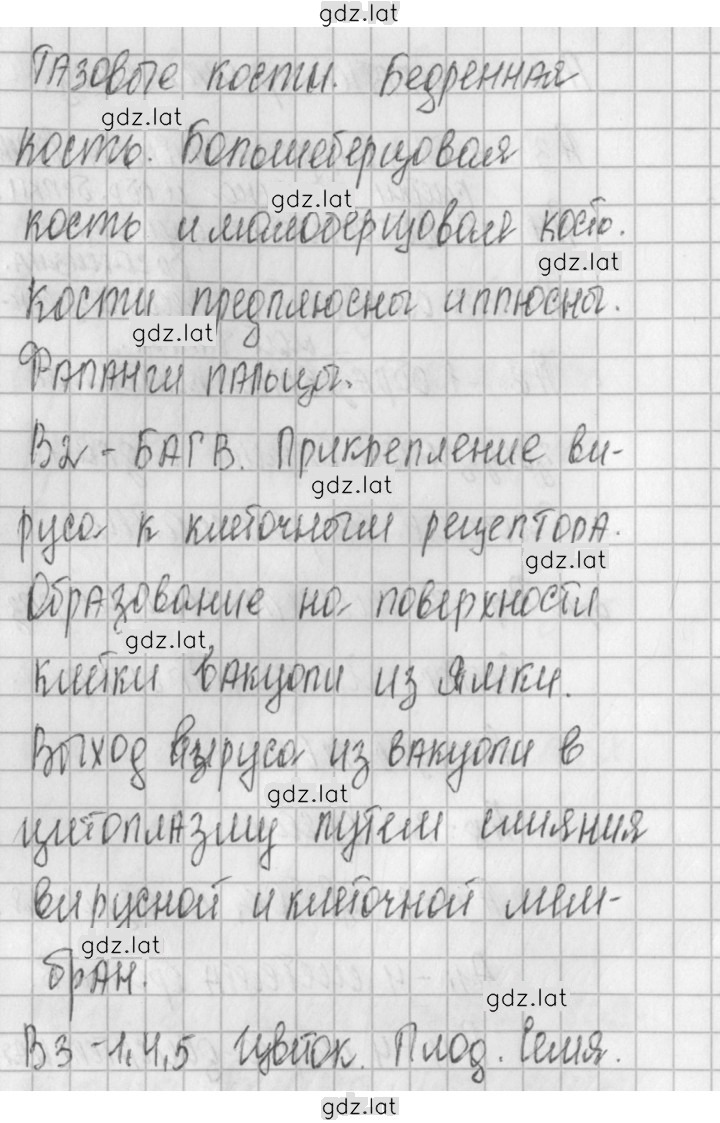 gdz.lat
Тазовые кости. Бедренная
gdz.lat
кость. Большеберцовая
gdz.lat
кость и малоберцовая кость.
gdz.lat
Кости предплюсны и плюсны.
gdz.lat
Фаланги пальцы.
В2 - БАГВ. Прикрепление ви-
gdz.lat
руса к клеточным рецептора.
gdz.lat
Образование на поверхности
gdz.lat
клетки вакуоли из ямки.
Выход вируса из вакуоли в
gdz.lat
цитоплазму путем слияния
вирусной и клеточной мем-
gdz.lat
бран.
gdz.lat
В3 - 1,4,5 Цветок. Плод. Семя.
gdz.lat